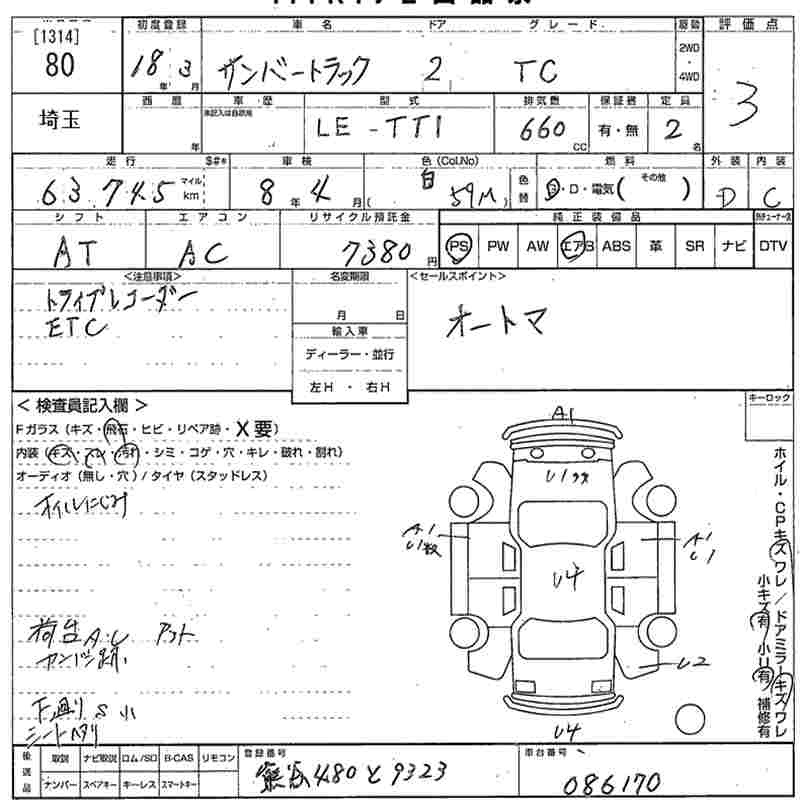 [1314]
80
埼玉
初度登録 車名 ドア グレード 駆動 評価点
18年 3月 サンバートラック 2 TC 2WD・4WD 3
西暦 車歴 型式 排気数 保証書 定員
年 未記入は自家用 LE-TT1 660 CC 有・無 2名
走行 $#* 車検 色(Col.No) 燃料 外装 内装
63745 マイル km 8年 4月 白 ( 59M ) 色替 G・D・電気( その他 ) D C
シフト エアコン リサイクル預託金 純正装備品
AT AC 7380円 PS PW AW エアB ABS 革 SR ナビ DTV
<注意事項> 名変期限 <セールスポイント>
ドライブレコーダー
ETC
月 日
輸入車
ディーラー・並行
左H・右H
オートマ
<検査員記入欄> キーロック
Fガラス(キズ・飛石・ヒビ・リペア跡・X要)
内装(キズ・スレ・汚れ・シミ・コゲ・穴・キレ・破れ・割れ)
オーディオ(無し・穴)/タイヤ(スタッドレス)
オイルにじみ
荷台A・U アオト
カンバン跡
下廻りS小
シートヘタリ
A1
A1
A1
U1
U4
U2
U4
ホイル・CPキズワレ/ドアミラーキズワレ
小キズ有 小U有 補修有
後送品 取説 ナビ取説 ロム/SD B-CAS リモコン
ナンバー スペアキー キーレス スマートキー
登録番号 480 と 9323
車台番号 086170